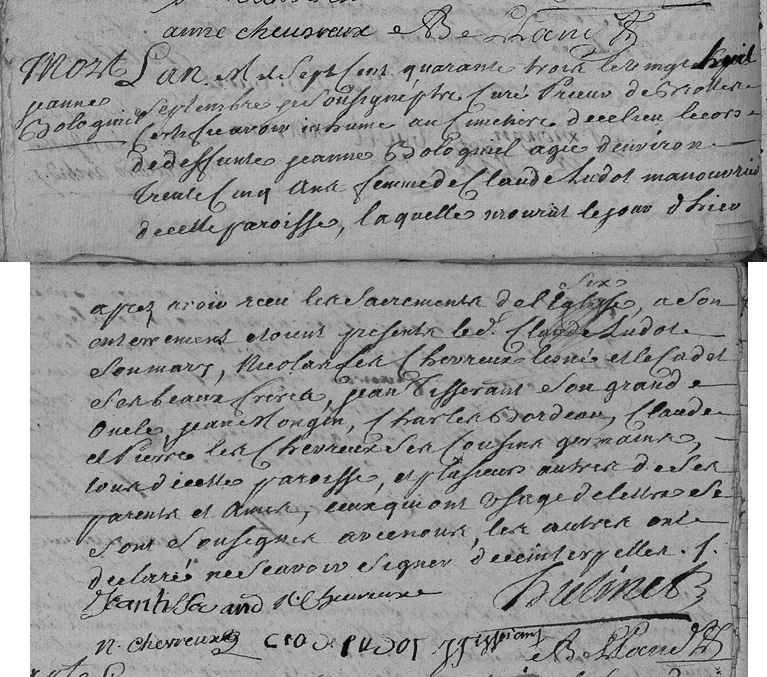 anne cheuvreux
Mort
jeanne
Bologniel
L'an mil sept cent quarante trois le vingt huit
septembre je soussigné ptre curé prieur de
certifie avoir inhumé au cimetiere de ce lieu le corps
de deffunte jeanne Bologniel agée d'environ
trente cinq ans femme de Claude Ludot manouvrier
de cette paroisse, laquelle mourut le jour d'hier
apres avoir receu les sacrements de l'Eglise, a son
enterrement etoient presents led. Claude Ludot
son mary, Nicolas les Chevreux l'ainé et le Cadet
ses beaux freres, jean Tisserant son grand
oncle, jean Mongin, Charles Bordeau, Claude
et Pierre les Chevreux ses cousins germains,
tous de cette paroisse, et plusieurs autres de ses
parents et amis, ceux qui ont usage de lettres se
sont sousignes avec nous, les autres ont
declaré ne scavoir signer de ce interpelles
jean tisserand N Cheureux
n. chevreux claude ludot